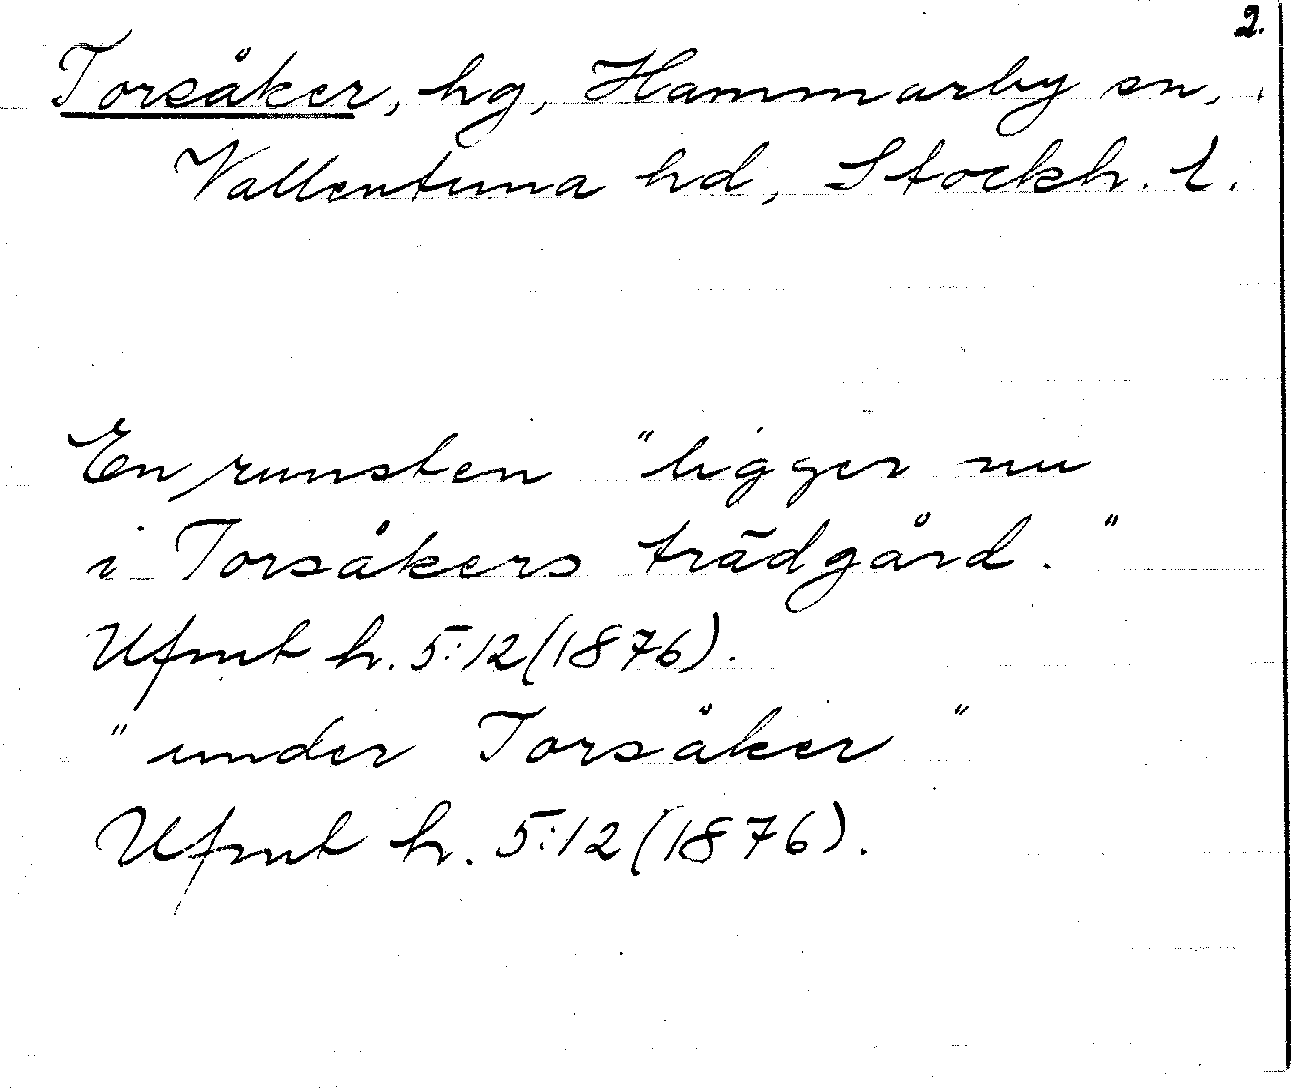 2.
Torsåker, hg, Hammarby sn,
Vallentuna hd, Stockh. l.
En runsten "ligger nu
i Torsåkers trädgård."
Ufmt h. 5:12 (1876).
"under Torsåker"
Ufmt h. 5:12 (1876).